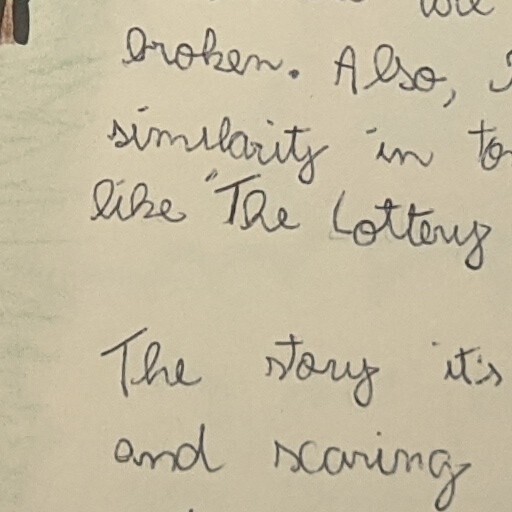 broken. Also,
similarity in
like "The Lottery
The story it's
and scaring